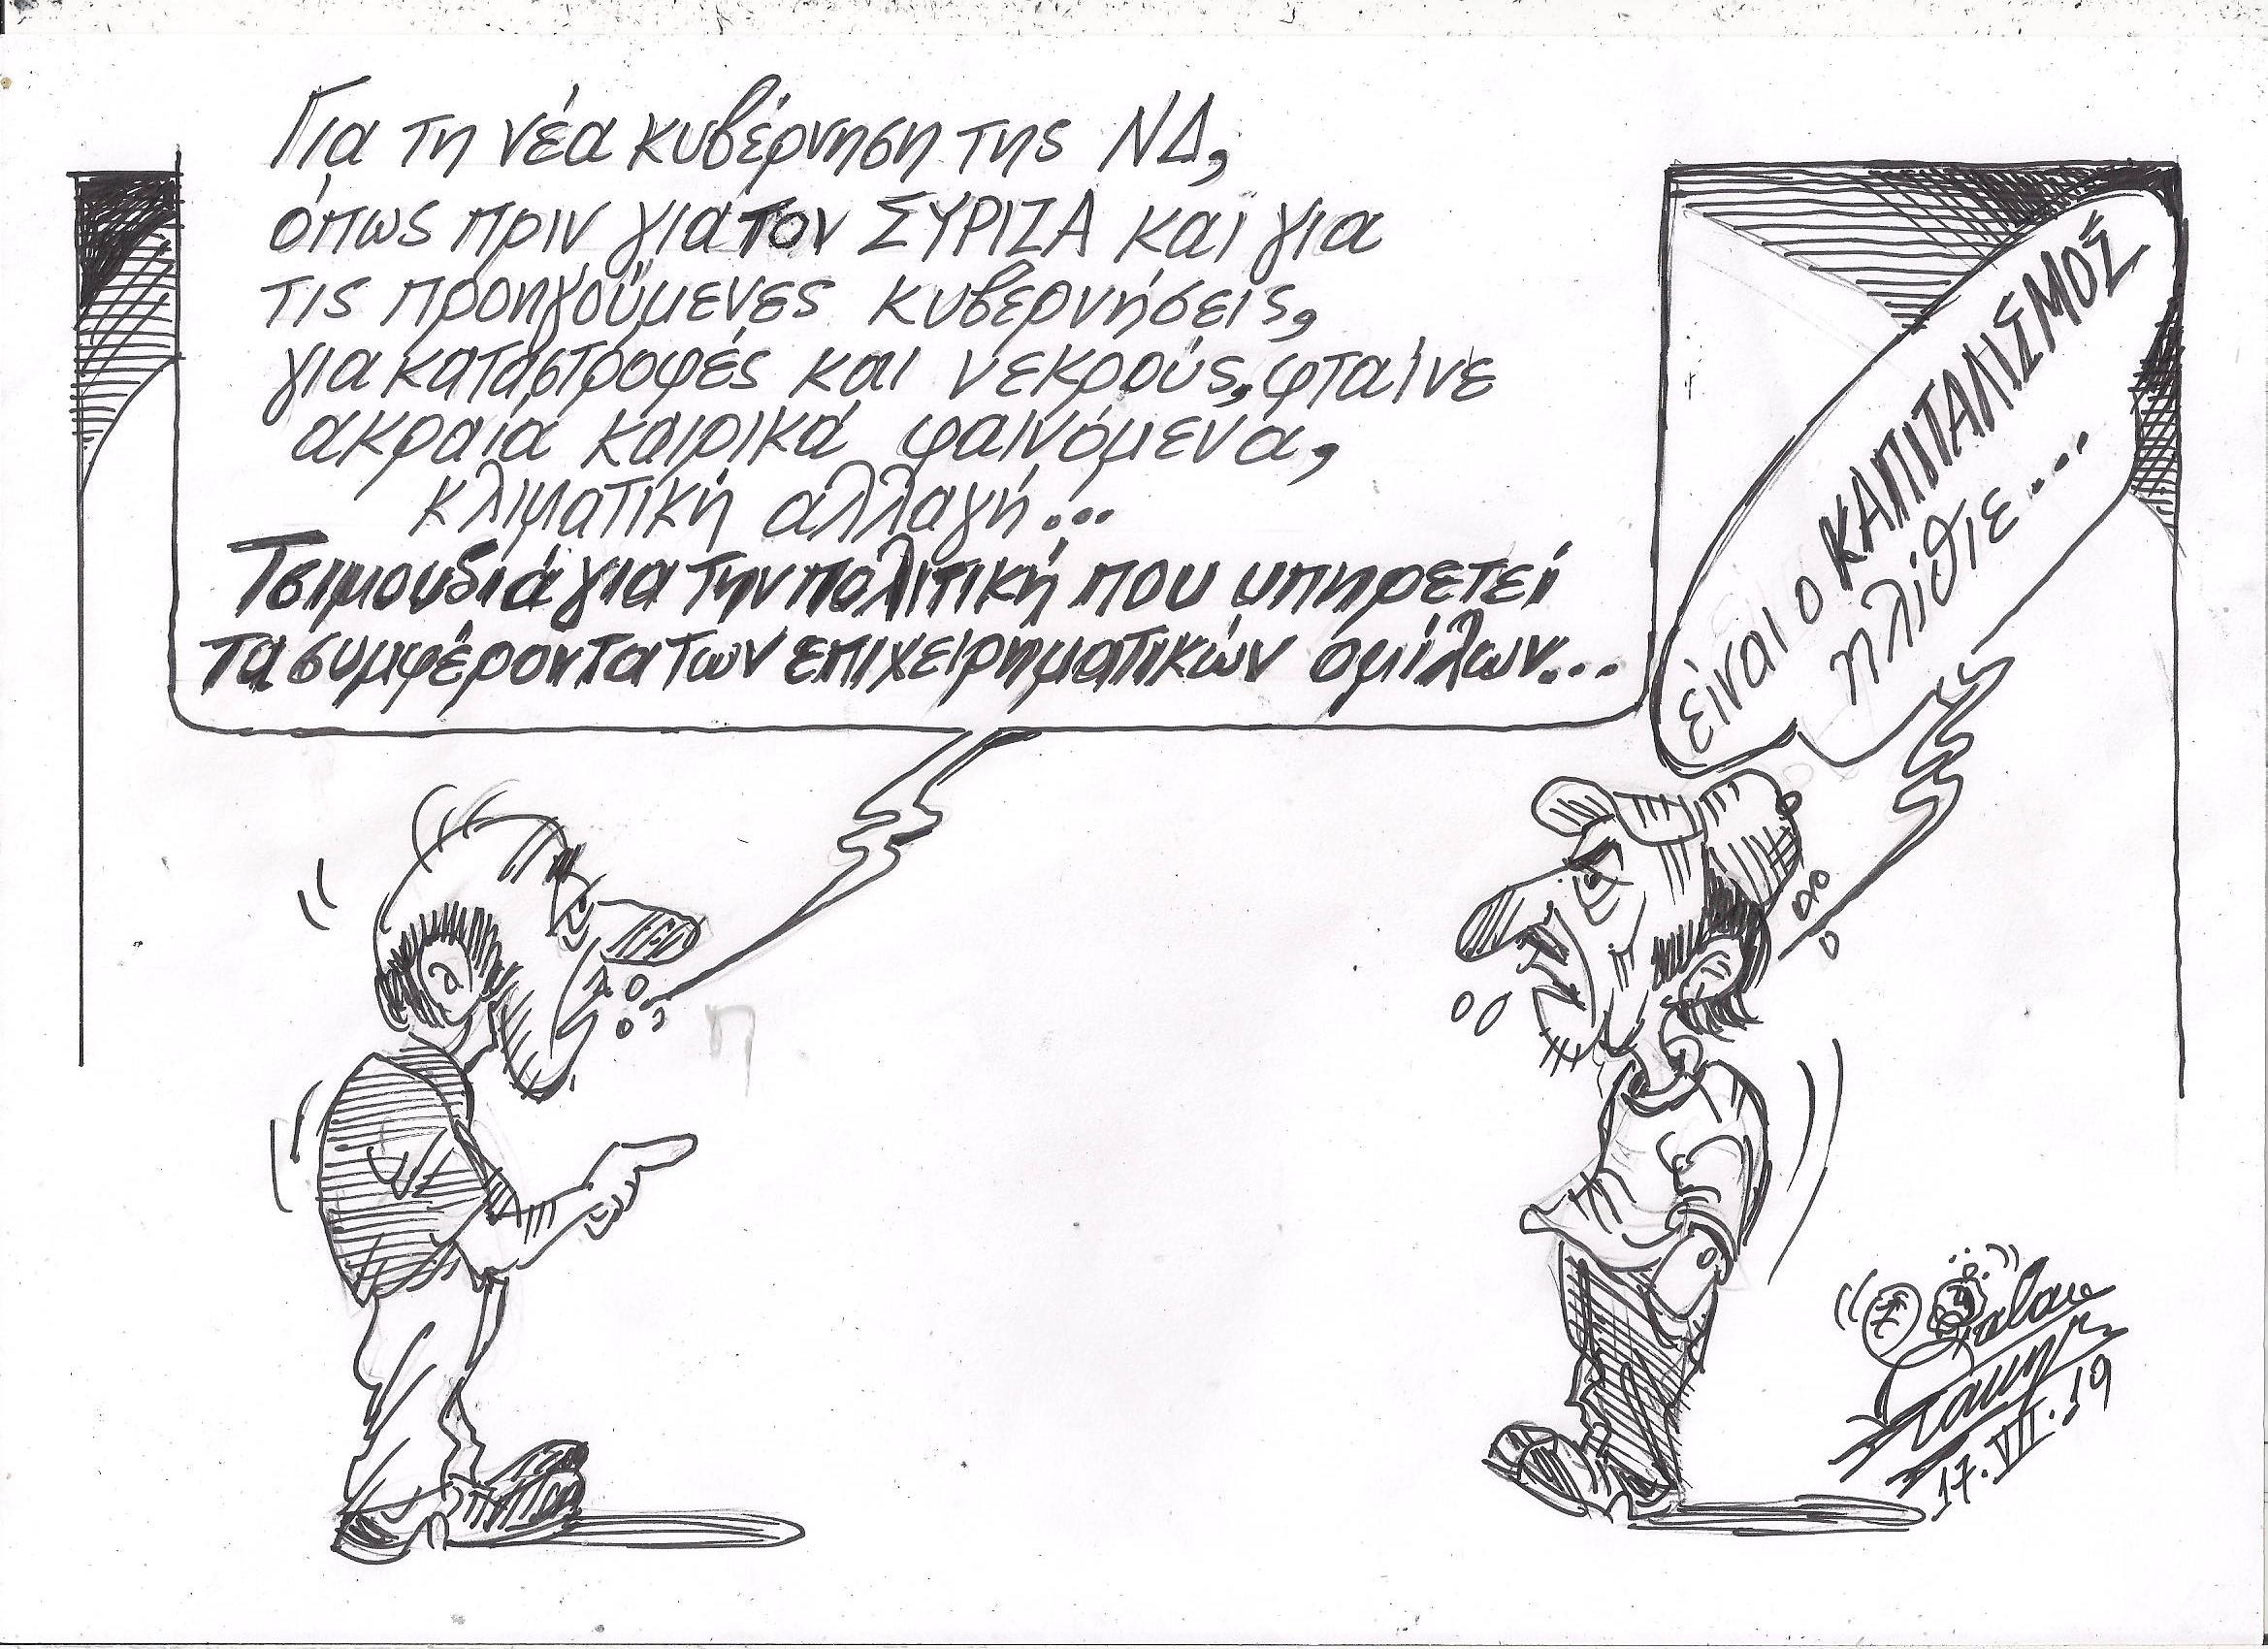 Για τη νέα κυβέρνηση της ΝΔ,
όπως πριν για τον ΣΥΡΙΖΑ και για
τις προηγούμενες κυβερνήσεις,
για καταστροφές και νεκρούς, φταίνε
ακραία καιρικά φαινόμενα,
κλιματική αλλαγή...
Τσιμουδιά για την πολιτική που υπηρετεί
τα συμφέροντα των επιχειρηματικών ομίλων...
είναι ο ΚΑΠΙΤΑΛΙΣΜΟΣ
ηλίθιε...
17.VII.19